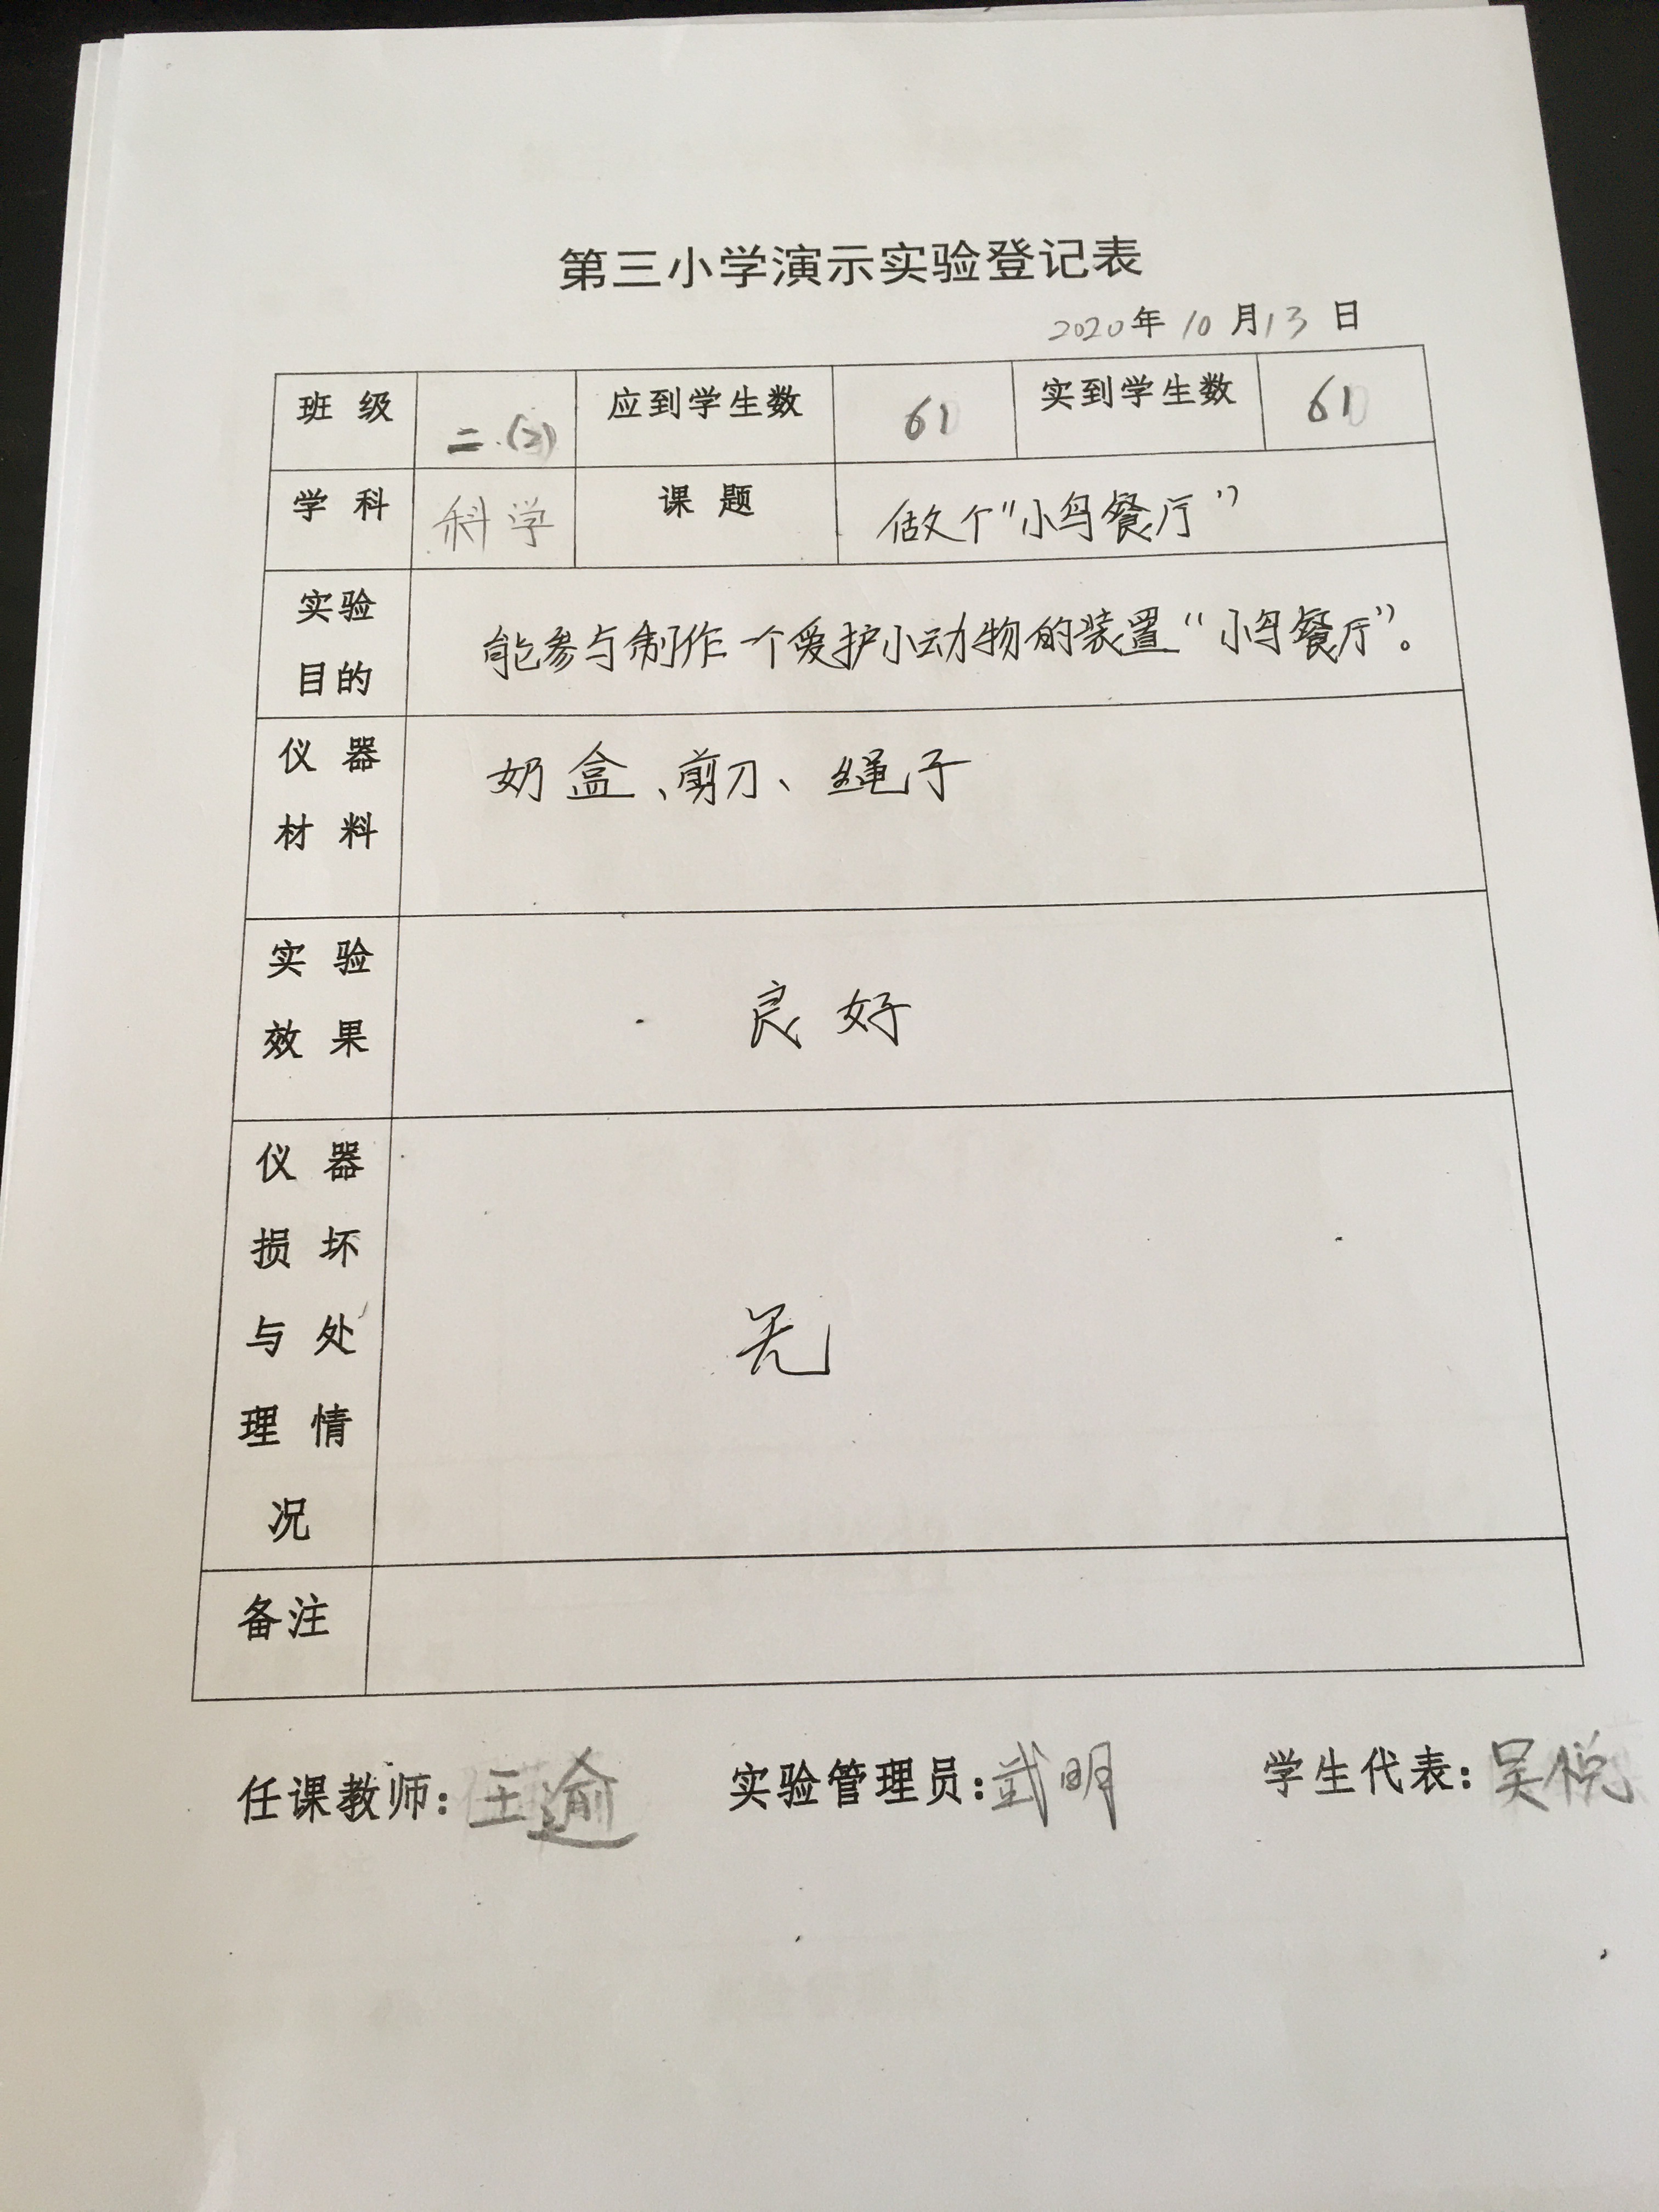 第三小学演示实验登记表
2020年 10月13日
班级 二.(2) 应到学生数 61 实到学生数 61
学科 科学 课题 做个“小鸟餐厅”
实验
目的
能参与制作一个爱护小动物的装置“小鸟餐厅”。
仪器
材料
奶盒、剪刀、绳子
实验
效果
良好
仪器
损坏
与处
理情
况
无
备注
任课教师：王逾 实验管理员：武明 学生代表：吴悦